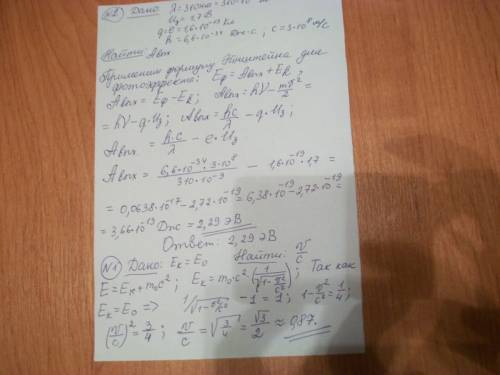 №2) Дано: λ=310нм=310·10
U₃=1,7В
q=e=1,6·10⁻¹⁹ Кл
h=6,6·10⁻³⁴ Дж·с, c=3·10⁸ м/с
Найти: Aвых
Применим формулу Эйнштейна для
фотоэффекта: Eф=Aвых+Eк
Aвых=Eф-Eк; Aвых=hV-mv²/2=
=hV-q·U₃; Aвых=h·c/λ-q·U₃
Aвых=h·c/λ-e·U₃
Aвых=6,6·10⁻³⁴·3·10⁸/310·10⁻⁹-1,6·10⁻¹⁹·1,7=
=0,0638·10⁻¹⁷-2,72·10⁻¹⁹=6,38·10⁻¹⁹-2,72·10⁻¹⁹=
=3,66·10⁻¹⁹Дж=2,29эВ
Ответ: 2,29эВ
№1) Дано: Eк=E₀ Найти: v/c
E=Eк+m₀c²; Eк=m₀·c²·(1/√1-v²/c²); Так как
Eк=E₀=> 1/√1-v²/c²-1=1; 1-v²/c²=1/4;
(v/c)²=3/4; v/c=√3/4=√3/2≈0,87.